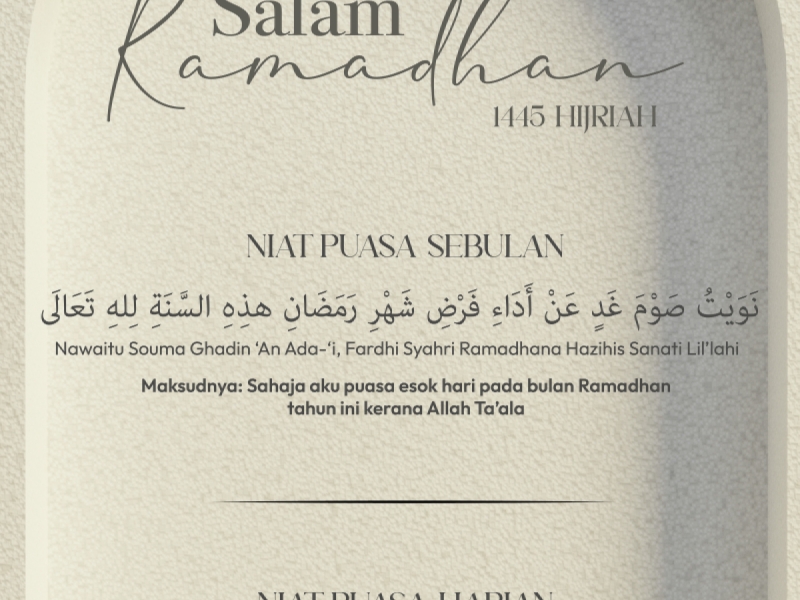 Salam
Ramadhan
1445 HIJRIAH
NIAT PUASA SEBULAN
نَوَيْتُ صَوْمَ غَدٍ عَنْ أَدَاءِ فَرْضِ شَهْرِ رَمَضَانِ هذِهِ السَّنَةِ لِلهِ تَعَالَى
Nawaitu Souma Ghadin ‘An Ada-‘i, Fardhi Syahri Ramadhana Hazihis Sanati Lil’lahi
Maksudnya: Sahaja aku puasa esok hari pada bulan Ramadhan
tahun ini kerana Allah Ta’ala
NIAT PUASA HARIAN